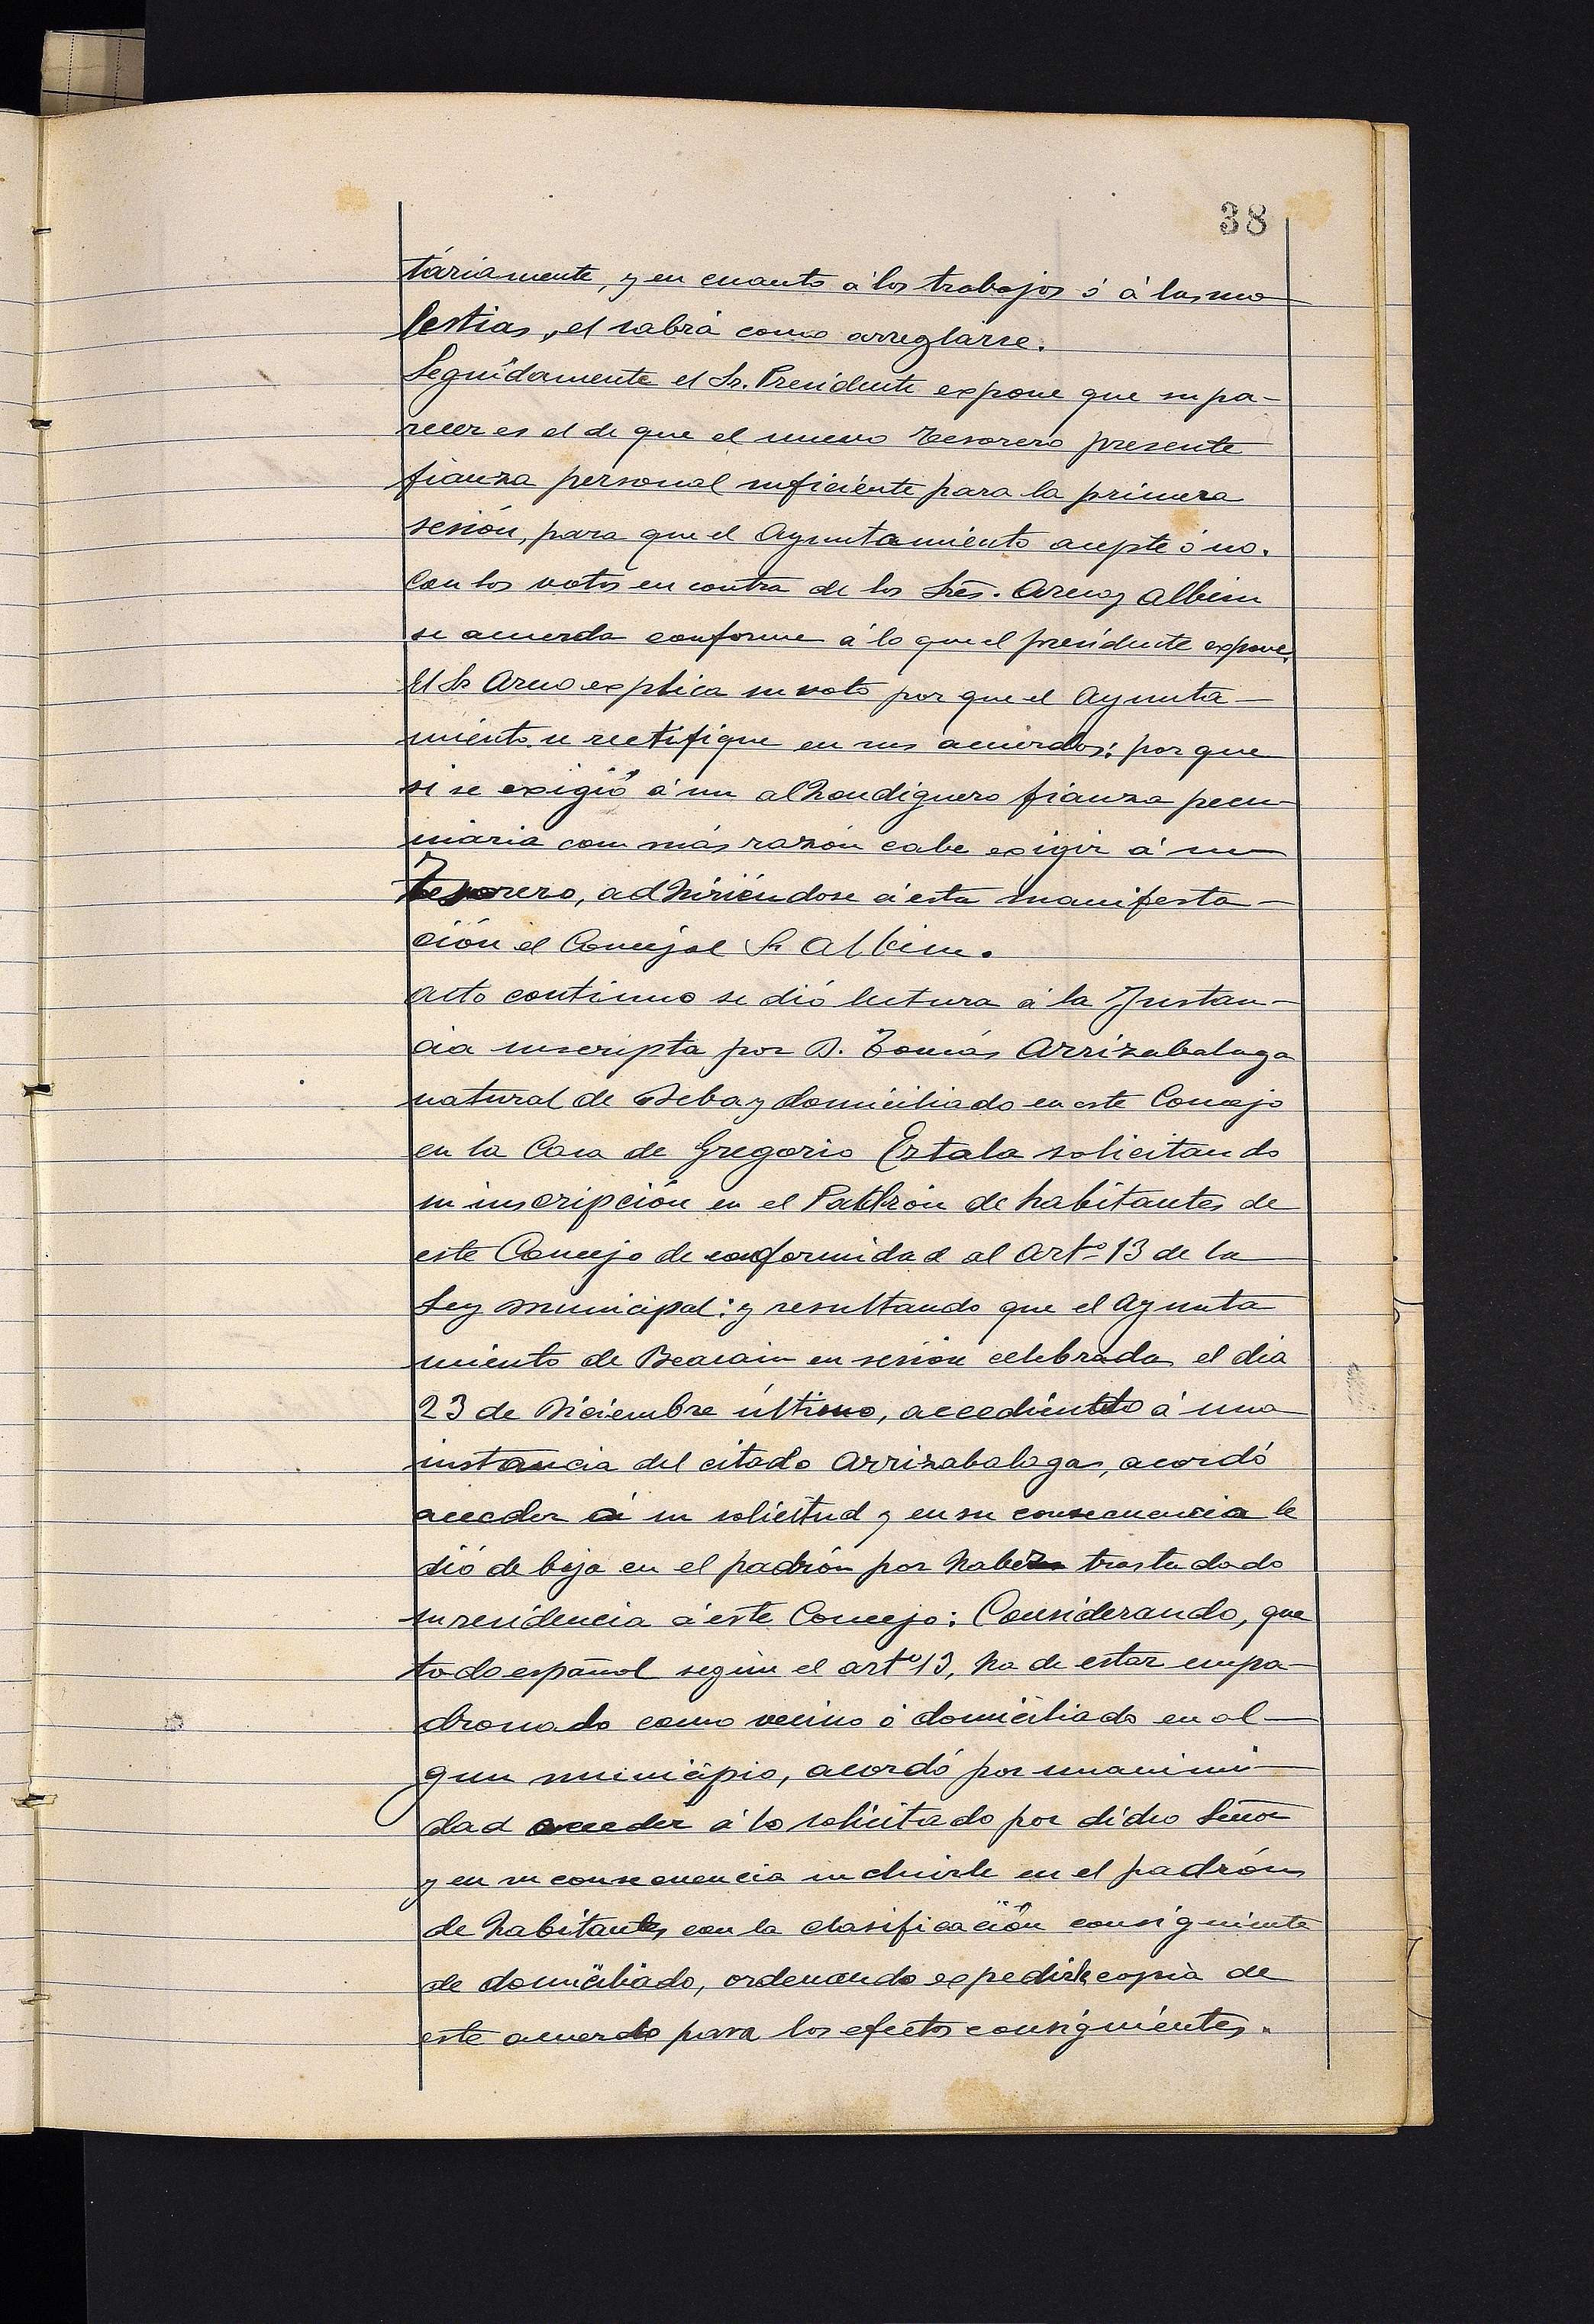 38
táriamente, y en cuanto á los trabajos ó á las mo
lestias, el sabrá como arreglarse.
Seguidamente el Sr. Presidente expone que su pa-
recer es el de que el nuevo Tesorero presente
fianza personal suficiente para la primera
sesión, para que el Ayuntamiento acepte ó no.
Con los votos en contra de los Srēs. Areno y Albisu
se acuerda conforme á lo que el presidente expone.
El Sr Areno explica su voto por que el Ayunta-
miento se rectifique en sus acuerdos: por que
si se exigió á un alhondiguero fianza pecu-
niaria con más razón cabe exigir á un
Tesorero, adhiriéndose á esta manifesta-
ción el Concejal Sr Albisu.
Acto continuo se dió lectura á la Instan-
cia suscripta por D. Tomás Arrizabalaga
natural de Deba y domiciliado en este Concejo
en la Casa de Gregorio Estala solicitando
su inscripción en el Padrón de habitantes de
este Concejo de conformidad al Artº 13 de la
Ley municipal: y resultando que el Ayunta
miento de Beasain en sesión celebrada el dia
23 de Diciembre último, accediendo á una
instancia del citado Arrizabalaga, acordó
acceder á su solicitud y en su consecuencia le
dió de baja en el padrón por haber trasladado
su residencia á este Concejo: Considerando, que
todo español según el artº 13, ha de estar empa-
dronado como vecino ó domiciliado en al-
gun municipio, acordó por unanimi-
dad acceder á lo solicitado por dicho Señor
y en su consecuencia incluirle en el padrón
de habitantes con la clasificación consiguiente
de domiciliado, ordenando expedirle copia de
este acuerdo para los efectos consiguientes.